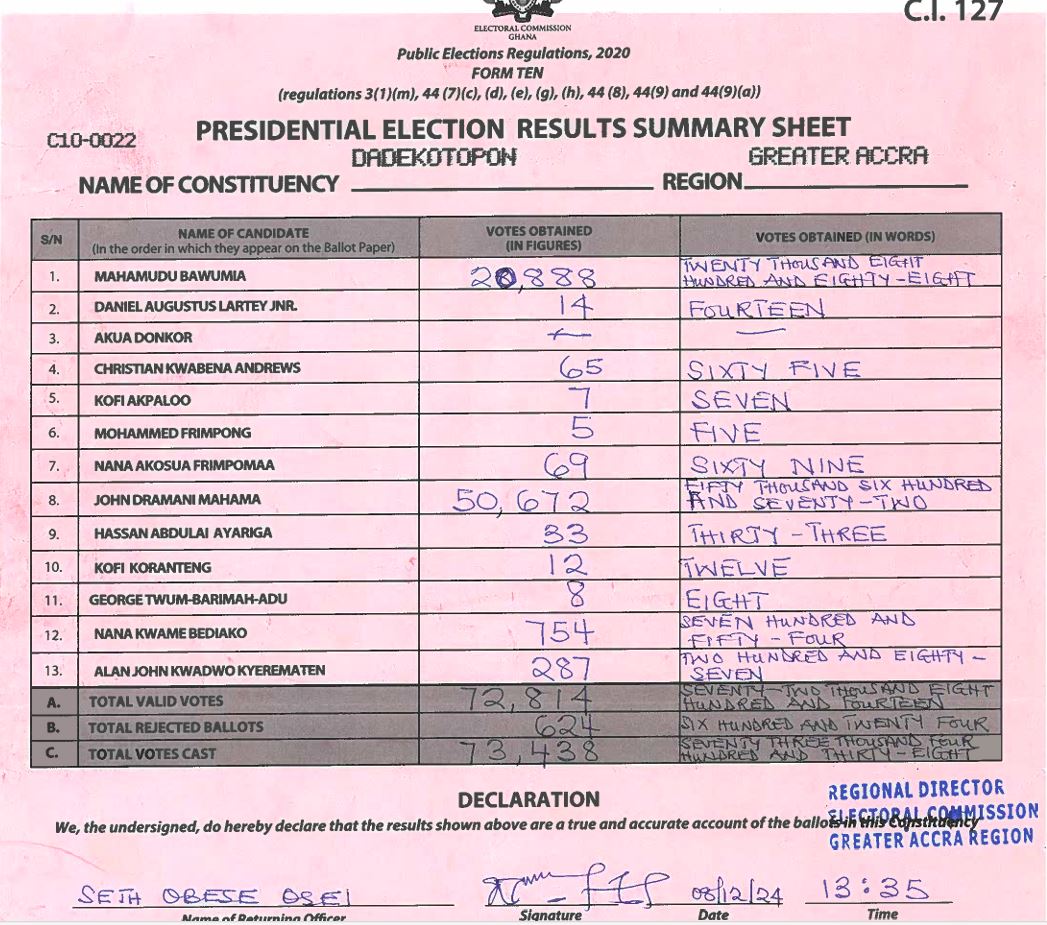 C.I. 127
ELECTORAL COMMISSION
GHANA
Public Elections Regulations, 2020
FORM TEN
(regulations 3(1)(m), 44 (7)(c), (d), (e), (g), (h), 44 (8), 44(9) and 44(9)(a))
C10-0022
PRESIDENTIAL ELECTION RESULTS SUMMARY SHEET
NAME OF CONSTITUENCY DADEKOTOPON REGION GREATER ACCRA
S/N NAME OF CANDIDATE (In the order in which they appear on the Ballot Paper) VOTES OBTAINED (IN FIGURES) VOTES OBTAINED (IN WORDS)
1. MAHAMUDU BAWUMIA 20,888 TWENTY THOUSAND EIGHT HUNDRED AND EIGHTY-EIGHT
2. DANIEL AUGUSTUS LARTEY JNR. 14 FOURTEEN
3. AKUA DONKOR
4. CHRISTIAN KWABENA ANDREWS 65 SIXTY FIVE
5. KOFI AKPALOO 7 SEVEN
6. MOHAMMED FRIMPONG 5 FIVE
7. NANA AKOSUA FRIMPOMAA 69 SIXTY NINE
8. JOHN DRAMANI MAHAMA 50,672 FIFTY THOUSAND SIX HUNDRED AND SEVENTY-TWO
9. HASSAN ABDULAI AYARIGA 33 THIRTY-THREE
10. KOFI KORANTENG 12 TWELVE
11. GEORGE TWUM-BARIMAH-ADU 8 EIGHT
12. NANA KWAME BEDIAKO 754 SEVEN HUNDRED AND FIFTY-FOUR
13. ALAN JOHN KWADWO KYEREMATEN 287 TWO HUNDRED AND EIGHTY-SEVEN
A. TOTAL VALID VOTES 72,814 SEVENTY-TWO THOUSAND EIGHT HUNDRED AND FOURTEEN
B. TOTAL REJECTED BALLOTS 624 SIX HUNDRED AND TWENTY FOUR
C. TOTAL VOTES CAST 73,438 SEVENTY THREE THOUSAND FOUR HUNDRED AND THIRTY-EIGHT
DECLARATION
We, the undersigned, do hereby declare that the results shown above are a true and accurate account of the ballots in this Constituency
REGIONAL DIRECTOR
ELECTORAL COMMISSION
GREATER ACCRA REGION
SETH OBESE OSEI 08/12/24 13:35
Name of Returning Officer Signature Date Time